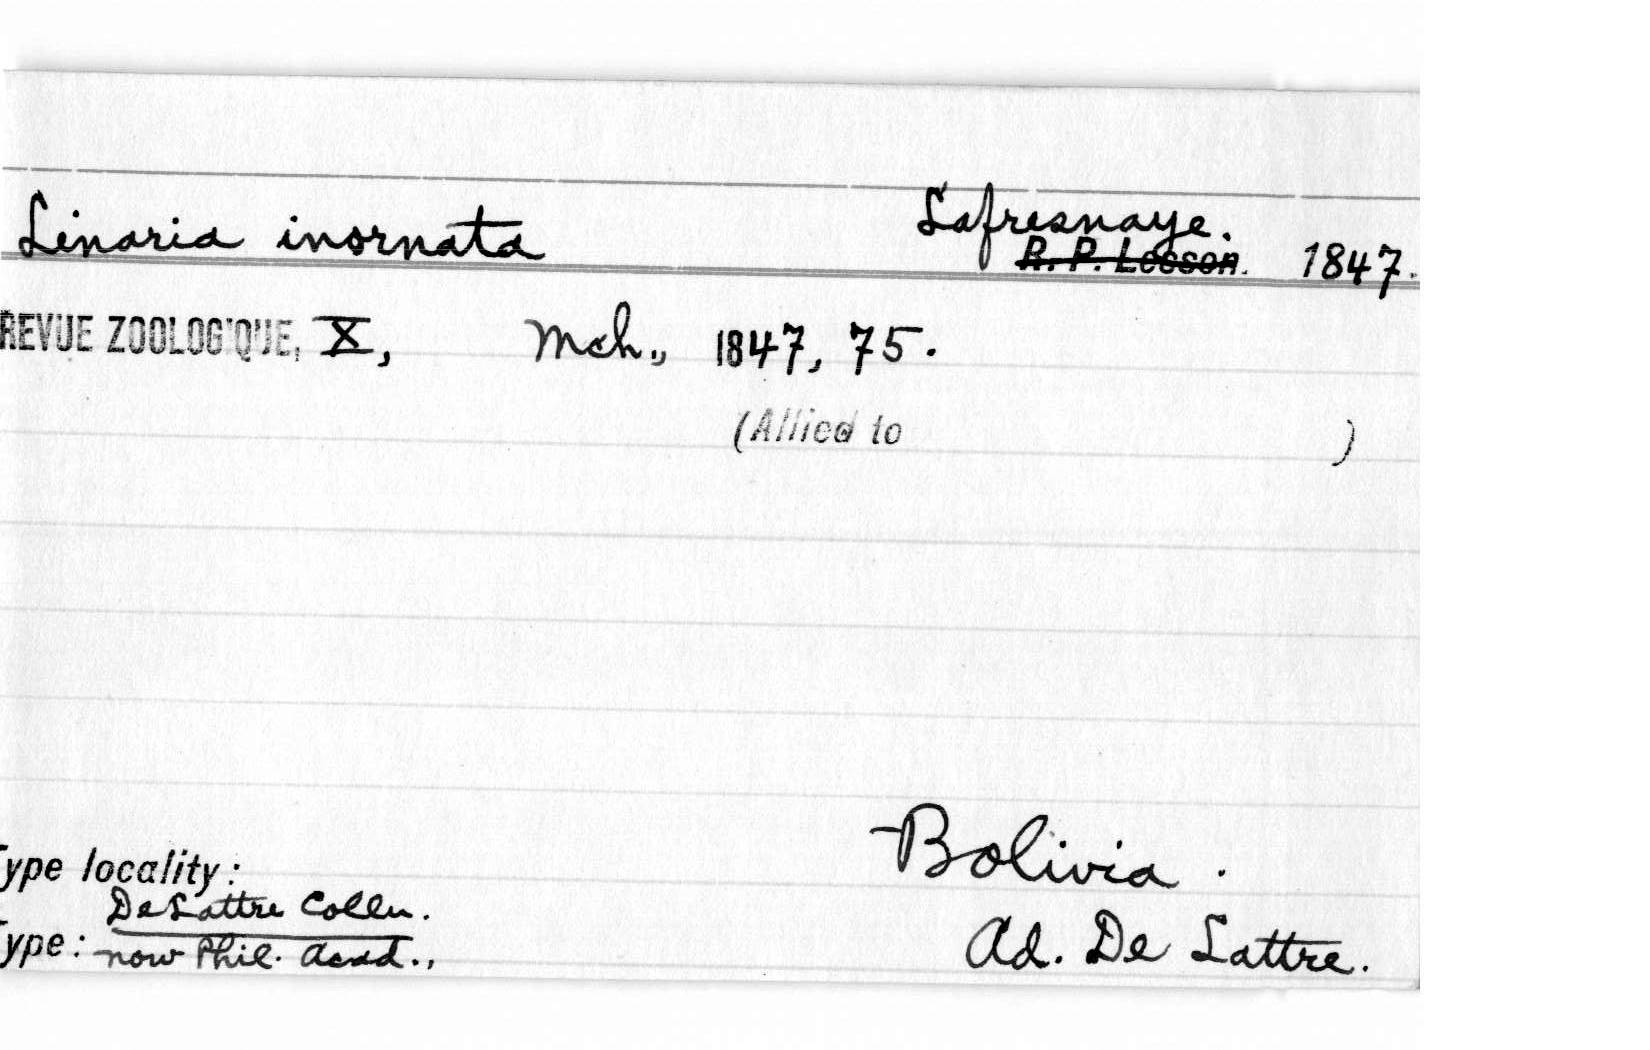 Linaria inornata Lafresnaye.
R. P. Lesson. 1847.
REVUE ZOOLOGIQUE, X, Mch., 1847, 75.
(Allied to )
Type locality: Bolivia.
De Lattre Colln.
Type: now Phil. Acad., Ad. De Lattre.